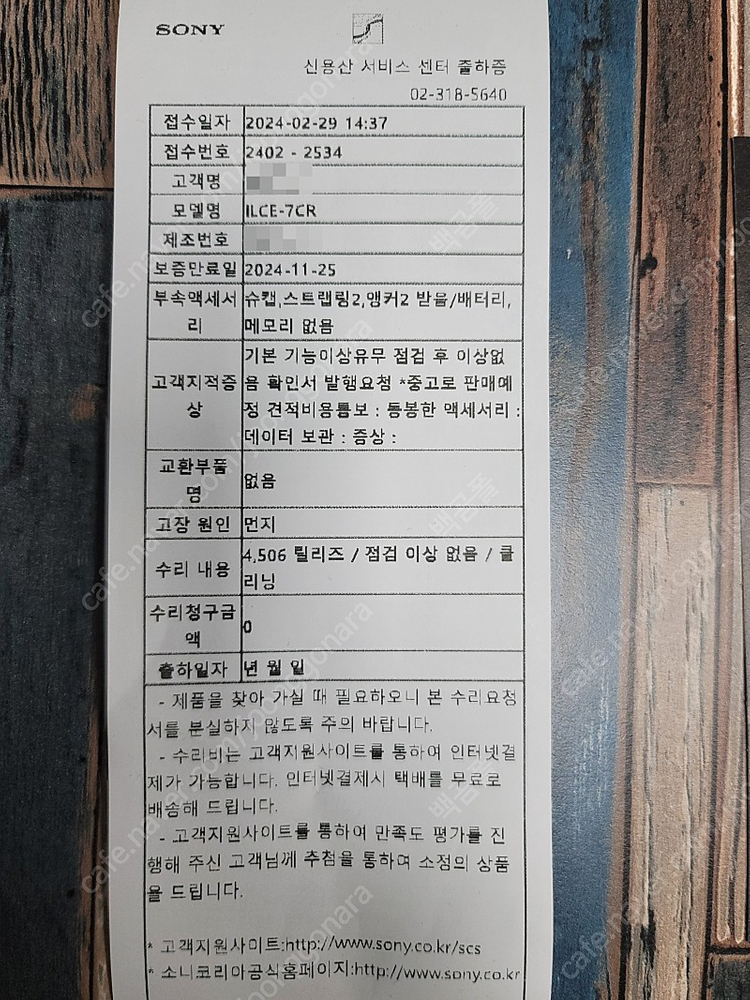 SONY
신용산 서비스 센터 출하증
02-318-5640
접수일자 2024-02-29 14:37
접수번호 2402 - 2534
고객명
모델명 ILCE-7CR
제조번호
보증만료일 2024-11-25
부속액세서리 슈캡,스트랩링2,앵커2 받음/배터리,
메모리 없음
고객지적증상 기본 기능이상유무 점검 후 이상없
음 확인서 발행요청 *중고로 판매예
정 견적비용통보 : 동봉한 액세서리 :
데이터 보관 : 증상 :
교환부품명 없음
고장 원인 먼지
수리 내용 4,506 릴리즈 / 점검 이상 없음 / 클
리닝
수리청구금액 0
출하일자 년 월 일
- 제품을 찾아 가실 때 필요하오니 본 수리요청
서를 분실하지 않도록 주의 바랍니다.
- 수리비는 고객지원사이트를 통하여 인터넷결
제가 가능합니다. 인터넷결제시 택배를 무료로
배송해 드립니다.
- 고객지원사이트를 통하여 만족도 평가를 진
행해 주신 고객님께 추첨을 통하여 소정의 상품
을 드립니다.
* 고객지원사이트:http://www.sony.co.kr/scs
* 소니코리아공식홈페이지:http://www.sony.co.kr